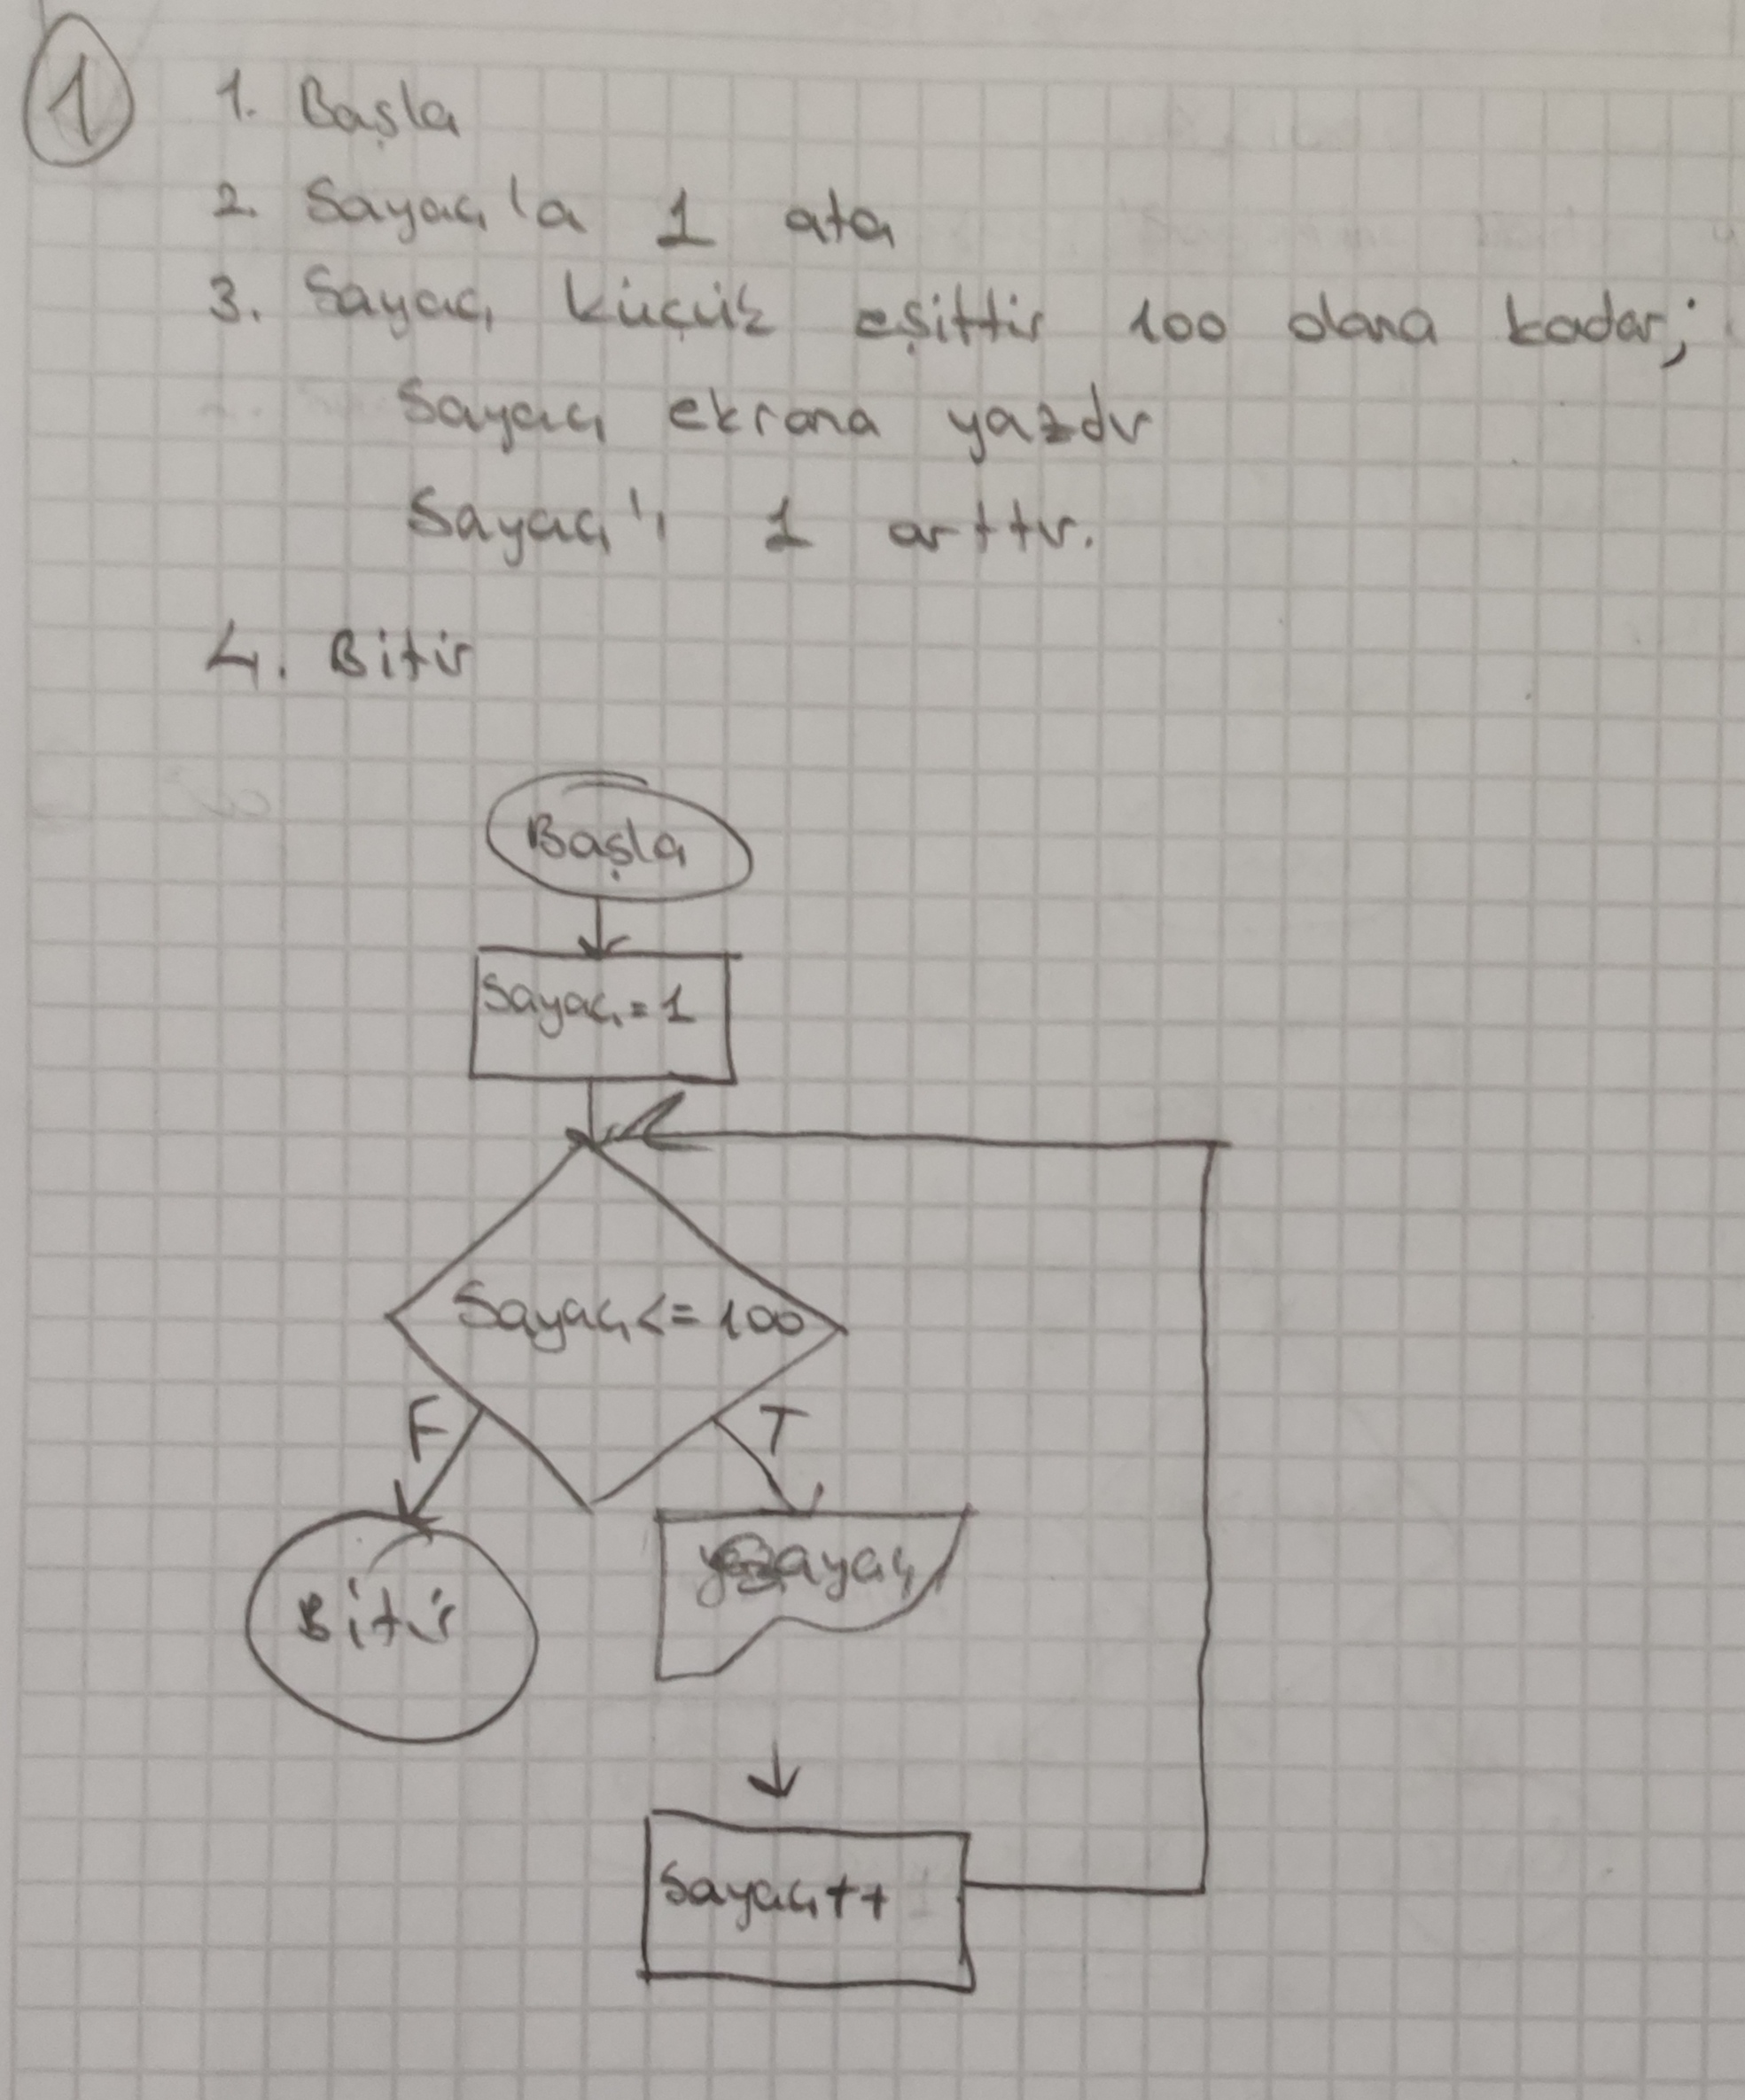 1
1. Başla
2. Sayaç'a 1 ata
3. Sayaç küçük eşittir 100 olana kadar;
Sayaç ekrana yazdır
Sayaç'ı 1 arttır.
4. Bitir
Başla
Sayaç=1
Sayaç<=100
F T
Sayaç
Bitir
Sayaç++